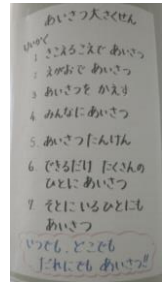 あいさつ大さくせん
1. きこえるこえで あいさつ
2. えがおで あいさつ
3. あいさつを かえす
4. みんなに あいさつ
5. あいさつたんけん
6. できるだけ たくさんの
ひとに あいさつ
7. そとに いるひとにも
あいさつ
いつでも、どこでも
だれにでも あいさつ!!